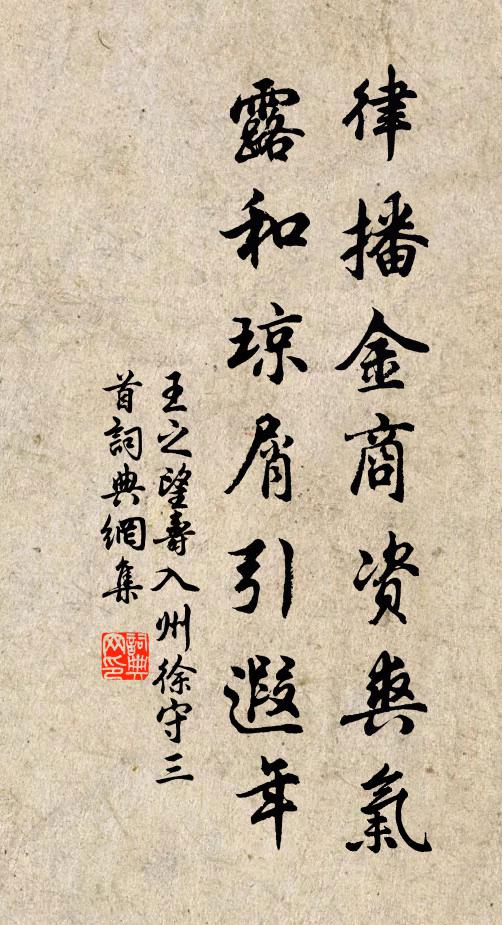 律播金商資爽氣
露和琼屑引遐年
王之望壽入州徐守三
首詞典網集
詞典网印